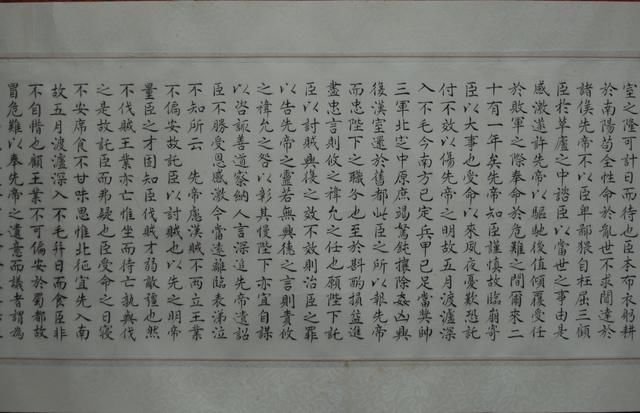 室之隆可計日而待也臣本布衣躬耕
於南陽苟全性命於亂世不求聞達於
諸侯先帝不以臣年鄙猥自枉屈三顧
臣於草廬之中諮臣以當世之事由是
感激遂許先帝以驅馳後值傾覆受任
於敗軍之際奉命於危難之間爾來二
十有一年矣先帝知臣謹慎故臨崩寄
臣以大事也受命以來夙夜憂歎恐託
付不效以傷先帝之明故五月渡瀘深
入不毛今南方已定兵甲已足當獎帥
三軍北定中原庶竭駑鈍攘除姦凶興
復漢室還於舊都此臣之所以報先帝
而忠陛下之職分也至於斟酌損益進
盡忠言則攸之禕允之任也願陛下託
臣以討賊興復之效不效則治臣之罪
以告先帝之靈若無興德之言則責攸
之禕允之咎以彰其慢陛下亦宜自謀
以咨諏善道察納人言深追先帝遺詔
臣不勝受恩感激今當遠離臨表涕泣
不知所云　先帝慮漢賊不兩立王業
不偏安故託臣以討賊也以先之明帝
量臣之才固知臣伐賊才弱敵彊也然
不伐賊王業亦亡惟坐而待亡孰與伐
之是故託臣而弗疑也臣受命之日寢
不安席食不甘味思惟北征宜先入南
故五月渡瀘深入不毛并日而食臣非
不自惜也顧王業不可偏安於蜀都故
冒危難以奉先帝之遺意而議者謂為